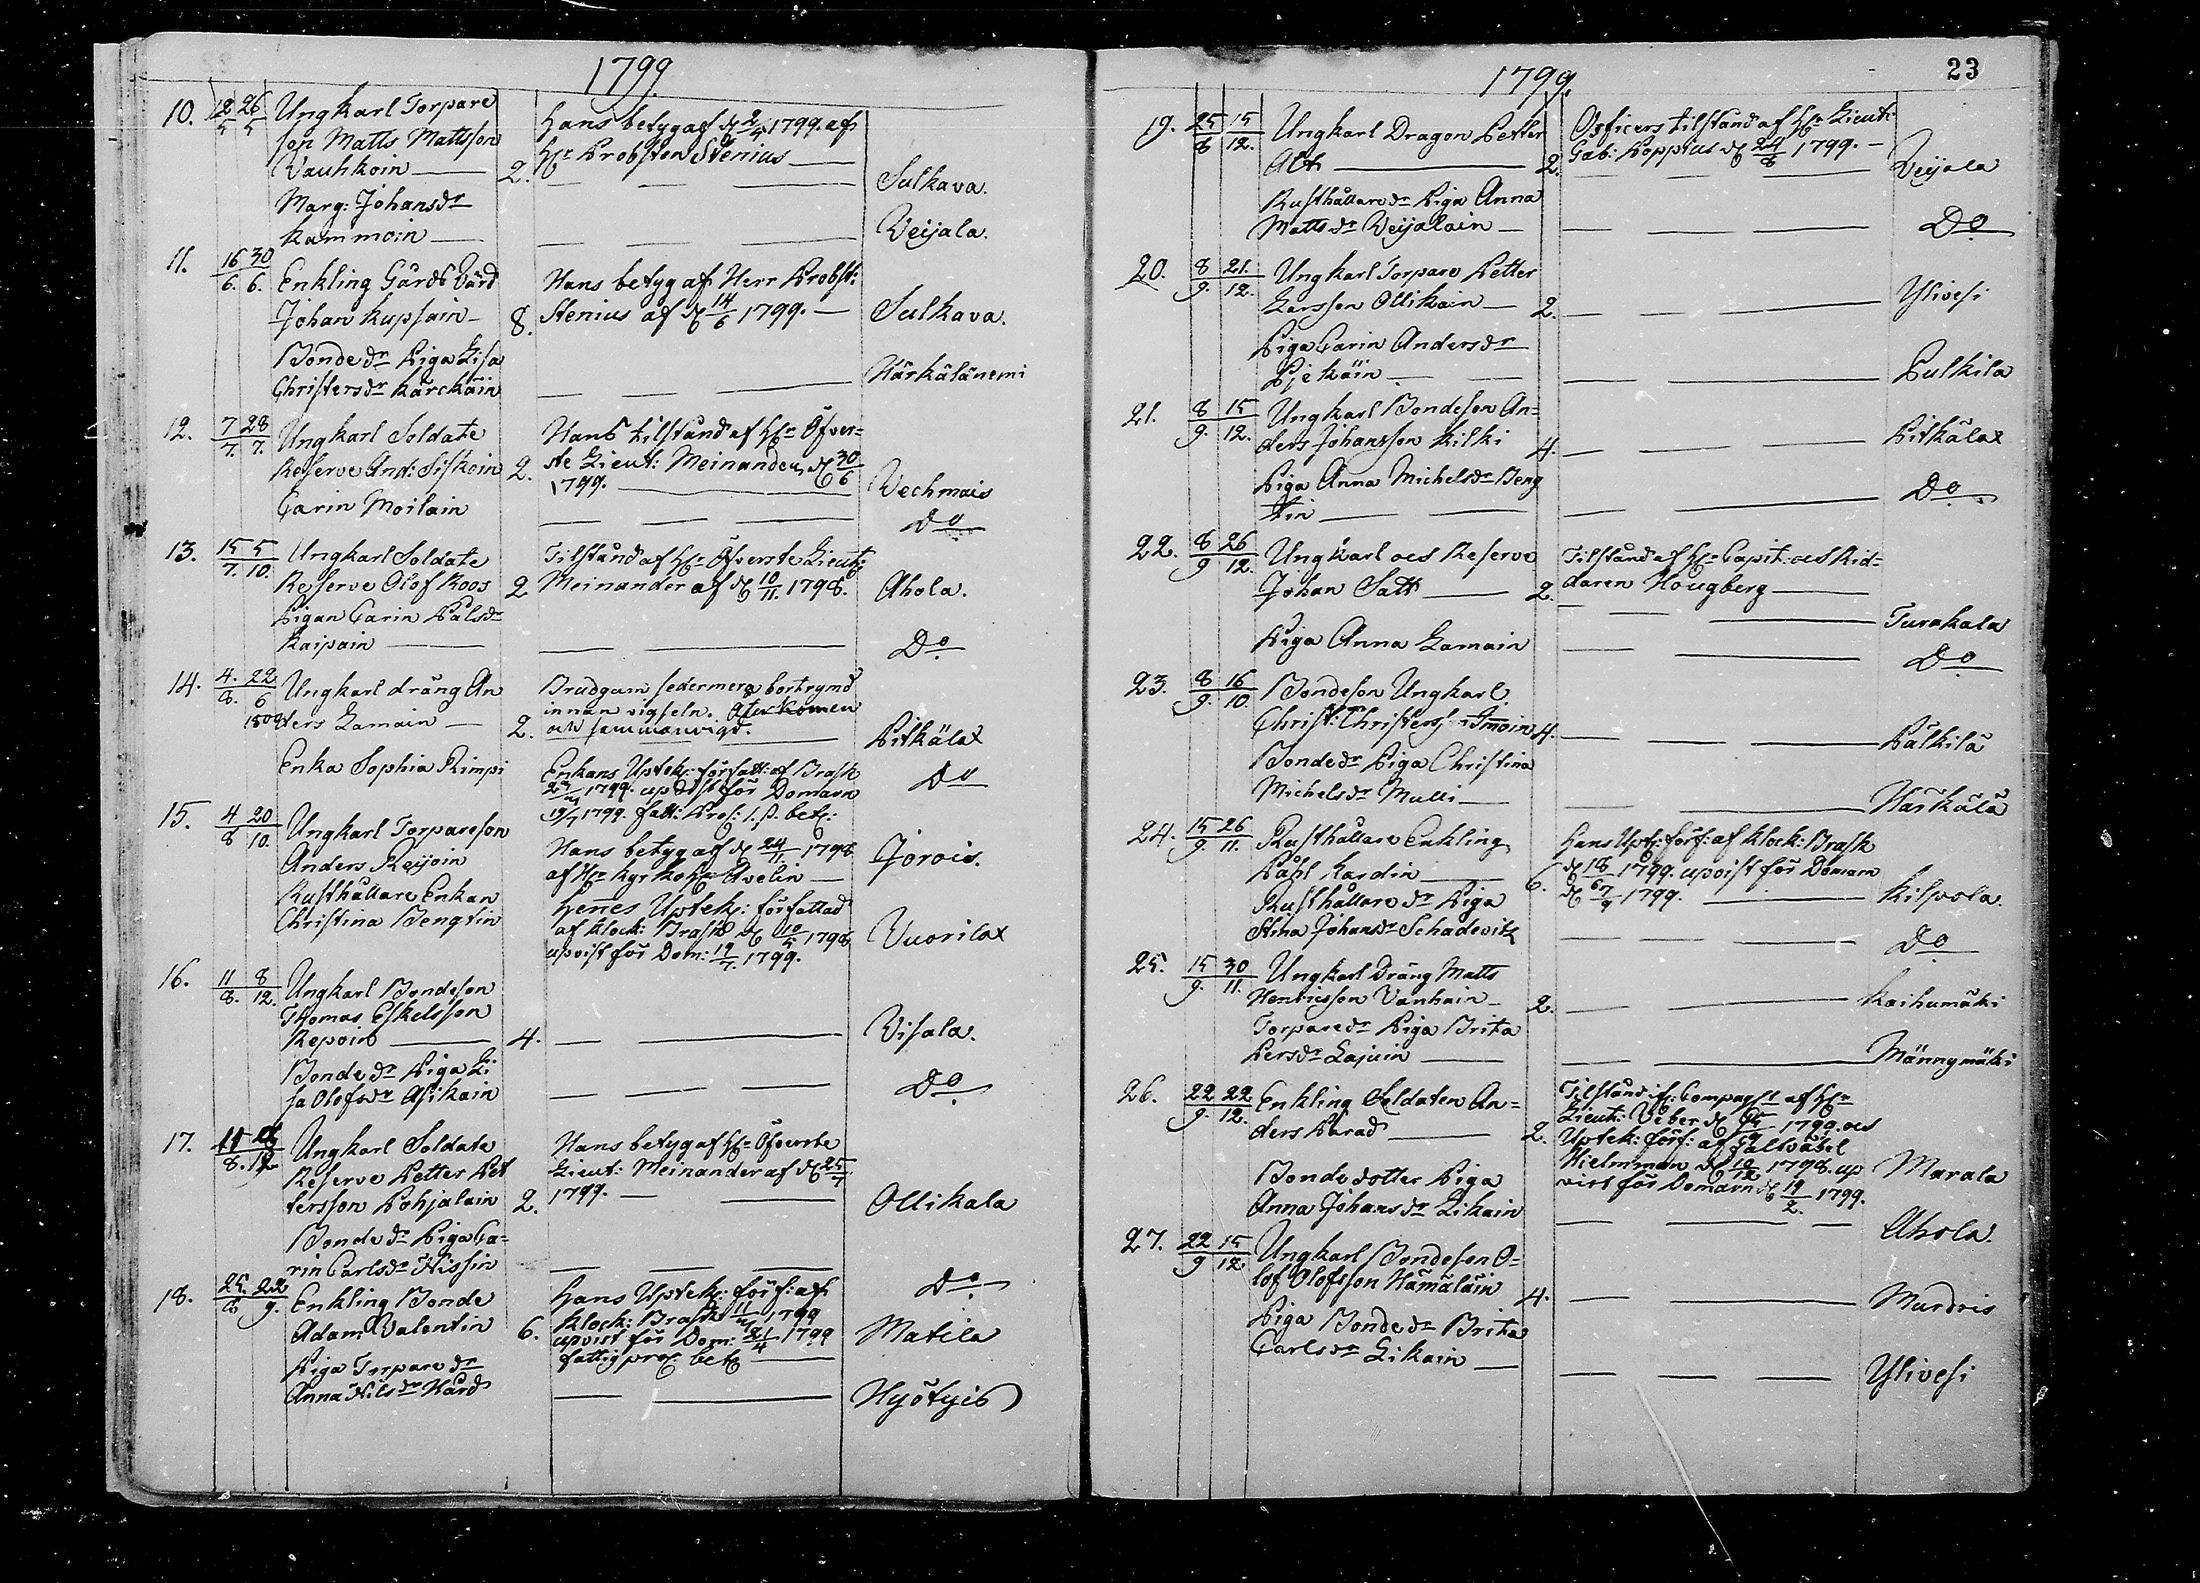 1799
10. 12/5 26/5 Ungkarl Torpare
son Matts Mattsson
Vauhkoin
2.
Marg: Johansdr
Kammoin
Hans betyg af d 2/4 1799. af
Hr Probsten Stenius
Sulkava.
Veijala.
11. 16/6. 30/6. Enkling Gårds Värd
Johan Kupsain
8.
Bonde dr Piga Lisa
Christersdr Kärckäin
Hans betyg af Herr Probst:
Stenius af d 14/6 1799.
Sulkava.
Härkälänemi
12. 7/7. 28/7. Ungkarl Soldate
Reserve And: Siskoin
2.
Carin Moilain
Hans tilstånd af Hr Öfver=
ste Lieut: Meinander d 30/6
1799.
Vechmais
Do
13. 15/7. 5/10. Ungkarl Soldate
Reserve Olof Koos
2
Pigan Carin Pålsdr
Kaipain
Tilstånd af Hr Öfverste Lieut:
Meinander af d 10/11. 1798.
Ahola.
Do
14. 4./8. 22/6 Ungkarl dräng An
1800
ders Lamain
2.
Enka Sophia Rimpi
Brudgum sedermera bortrymd
innan vigseln. Återkomen
och sammanvigt.
Enkans Uptek: författ: af Brask
1799. upvist för Domarn
19/7 1799. fatt: Pros: 1. s. bet:
Pitkälax
Do
15. 4/8 20/10. Ungkarl Torpareson
Anders Reijoin
Rusthållare Enkan
Christina Bengtin
Hans betyg af d 24/11. 1798
af Hr Kyrkohr Avelin
Hennes Uptek: författad
af Klock: Brask d 10/5 1798
upvist för Dom: 19/7. 1799.
Jorois.
Vuorilax
16. 11/8. 8/12. Ungkarl Bondeson
Thomas Eskelsson
Repoin
4.
Bonde dr Piga Li
sa Olofsdr Asikain
Visala.
Do
17. 11/8. Ungkarl Soldate
Reserve Petter Pet
tersson Pohjalain
2.
Bonde dr Piga Ca=
rin Carlsdr Nissin
Hans betyg af Hr Öfverste
Lieut: Meinander af d 25/7
1799.
Ollikala
Do
18. 25./8 22/9. Enkling Bonde
Adam Valentin
6.
Piga Torpare dr
Anna Nilsdr Hård
Hans Uptek: förf: af
Klock: Brask 1799
upvist för Dom: 21/4 1799
fattig pros: bet:
Matila
Hyötyis
23
1799.
19. 25/8 15/12. Ungkarl Dragon Petter
Alt
2.
Rusthållare dr Piga Anna
Matts dr Veijalain
Officers tilstånd af Hr Lieut:
Gab: Poppius d 24/8 1799.
Veijala
Do
20. 8/9. 21./12. Ungkarl Torpare Petter
Larsson Ollikain
2.
Piga Carin Andersdr
Pjekäin
Ylivesi
Pulkila
21. 8/9. 15/12. Ungkarl Bondeson An=
ders Johansson Kilki
4.
Piga Anna Michelsdr Beng
tin
Pitkälax
Do
22. 8/9 26/12. Ungkarl och Reserve
Johan Satt
2.
Piga Anna Lamain
Tilstånd af Hr Capit: och Rid=
daren Hougberg
Turakala
Do
23. 8/9. 16/10. Bondeson Ungkarl
Christ: Christerss: Immoin
4.
Bonde dr Piga Christina
Michelsdr Mulli
Pälkilä
Härkälä
24. 15/9. 26/11. Rusthållare Enkling
Påhl Kardin
6.
Rusthållare dr Piga
Stina Johansdr Schadevitz
Hans Upt: förf: af Klock: Brask
d 18/6 1799. upvist för Domarn
d 7/9 1799.
Kilpola.
Do
25. 15/9. 30/11. Ungkarl Dräng Matts
Henricsson Vanhain
2.
Torpare dr Piga Brita
Persdr Lajuin
Kaihumäki
Männymäki
26. 22/9. 22/12. Enkling Soldaten An=
ders Parad
2.
Bonde dotter Piga
Anna Johansdr Likain
Tilstånd ifr: Compagt af Hr
Lieut: Veber d 1799. och
Uptek: förf: af Fältväbel
Hielmman d 12/12 1798. up
vist för Domarn d 19/2. 1799.
Marala
Ahola
27. 22/9 15/12. Ungkarl Bondeson O=
lof Olofsson Hämäläin
4.
Piga Bonde dr Brita
Carlsdr Likain
Murdois
Ylivesi